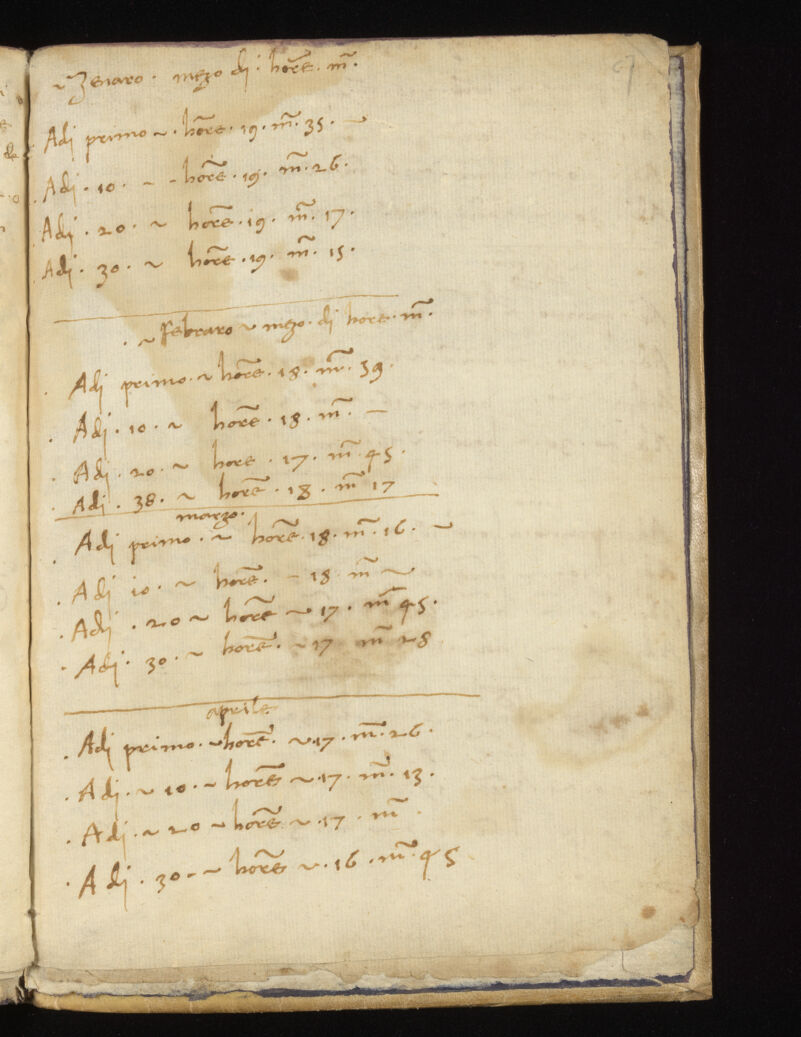 ~ Zenaro · mezo di · hore · m̃ ·
Adi primo ~ · hore · 19 · m̃ · 35 · ~
Adi · 10 · ~ - hore · 19 · m̃ · 26 ·
Adi · 20 · ~ hore · 19 · m̃ · 17 ·
Adi · 30 · ~ hore · 19 · m̃ · 15 ·
· ~ febraro ~ mezo · di hore · m̃ ·
Adi primo · ~ hore · 18 · m̃ · 39 ·
Adi · 10 · ~ hore · 18 · m̃ · —
Adi · 20 · ~ hore · 17 · m̃ · 45 ·
Adi · 38 · ~ hore · 18 · m̃ 17
marzo ·
Adi primo · ~ hore · 18 · m̃ · 16 · ~
Adi 10 · ~ hore · – 18 · m̃ ~
Adi · 20 ~ hore ~ 17 · m̃ 45 ·
Adi · 30 · ~ hore · ~ 17 m̃ 28
aprile
Adi primo · ~ hore · ~ · 17 · m̃ · 26 ·
Adi · ~ 10 · ~ hore ~ · 17 · m̃ · 13 ·
Adi · ~ 20 ~ hore ~ · 17 · m̃ ·
Adi · 30 · ~ hore ~ · 16 · m̃ · 45